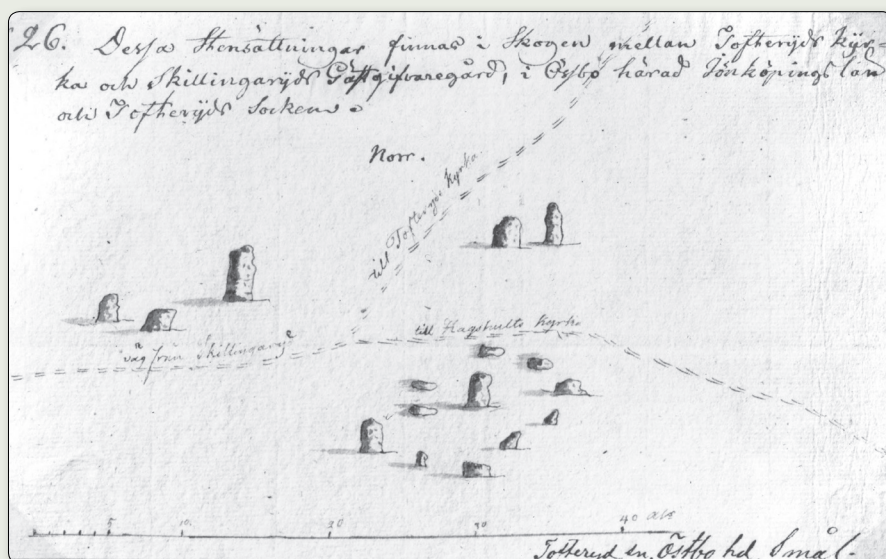 26. Dessa Stensättningar finnas i Skogen mellan Tofteryds Kyr-
ka och Skillingaryds Gästgifvaregård, i Östbo härad Jönköpings län
och Tofteryds Socken.
Norr.
till Tofteryds Kyrka
till Hagshults Kyrka
väg från Skillingaryd
5 10 20 30 40 aln
Tofteryd sn, Östbo hd Smål